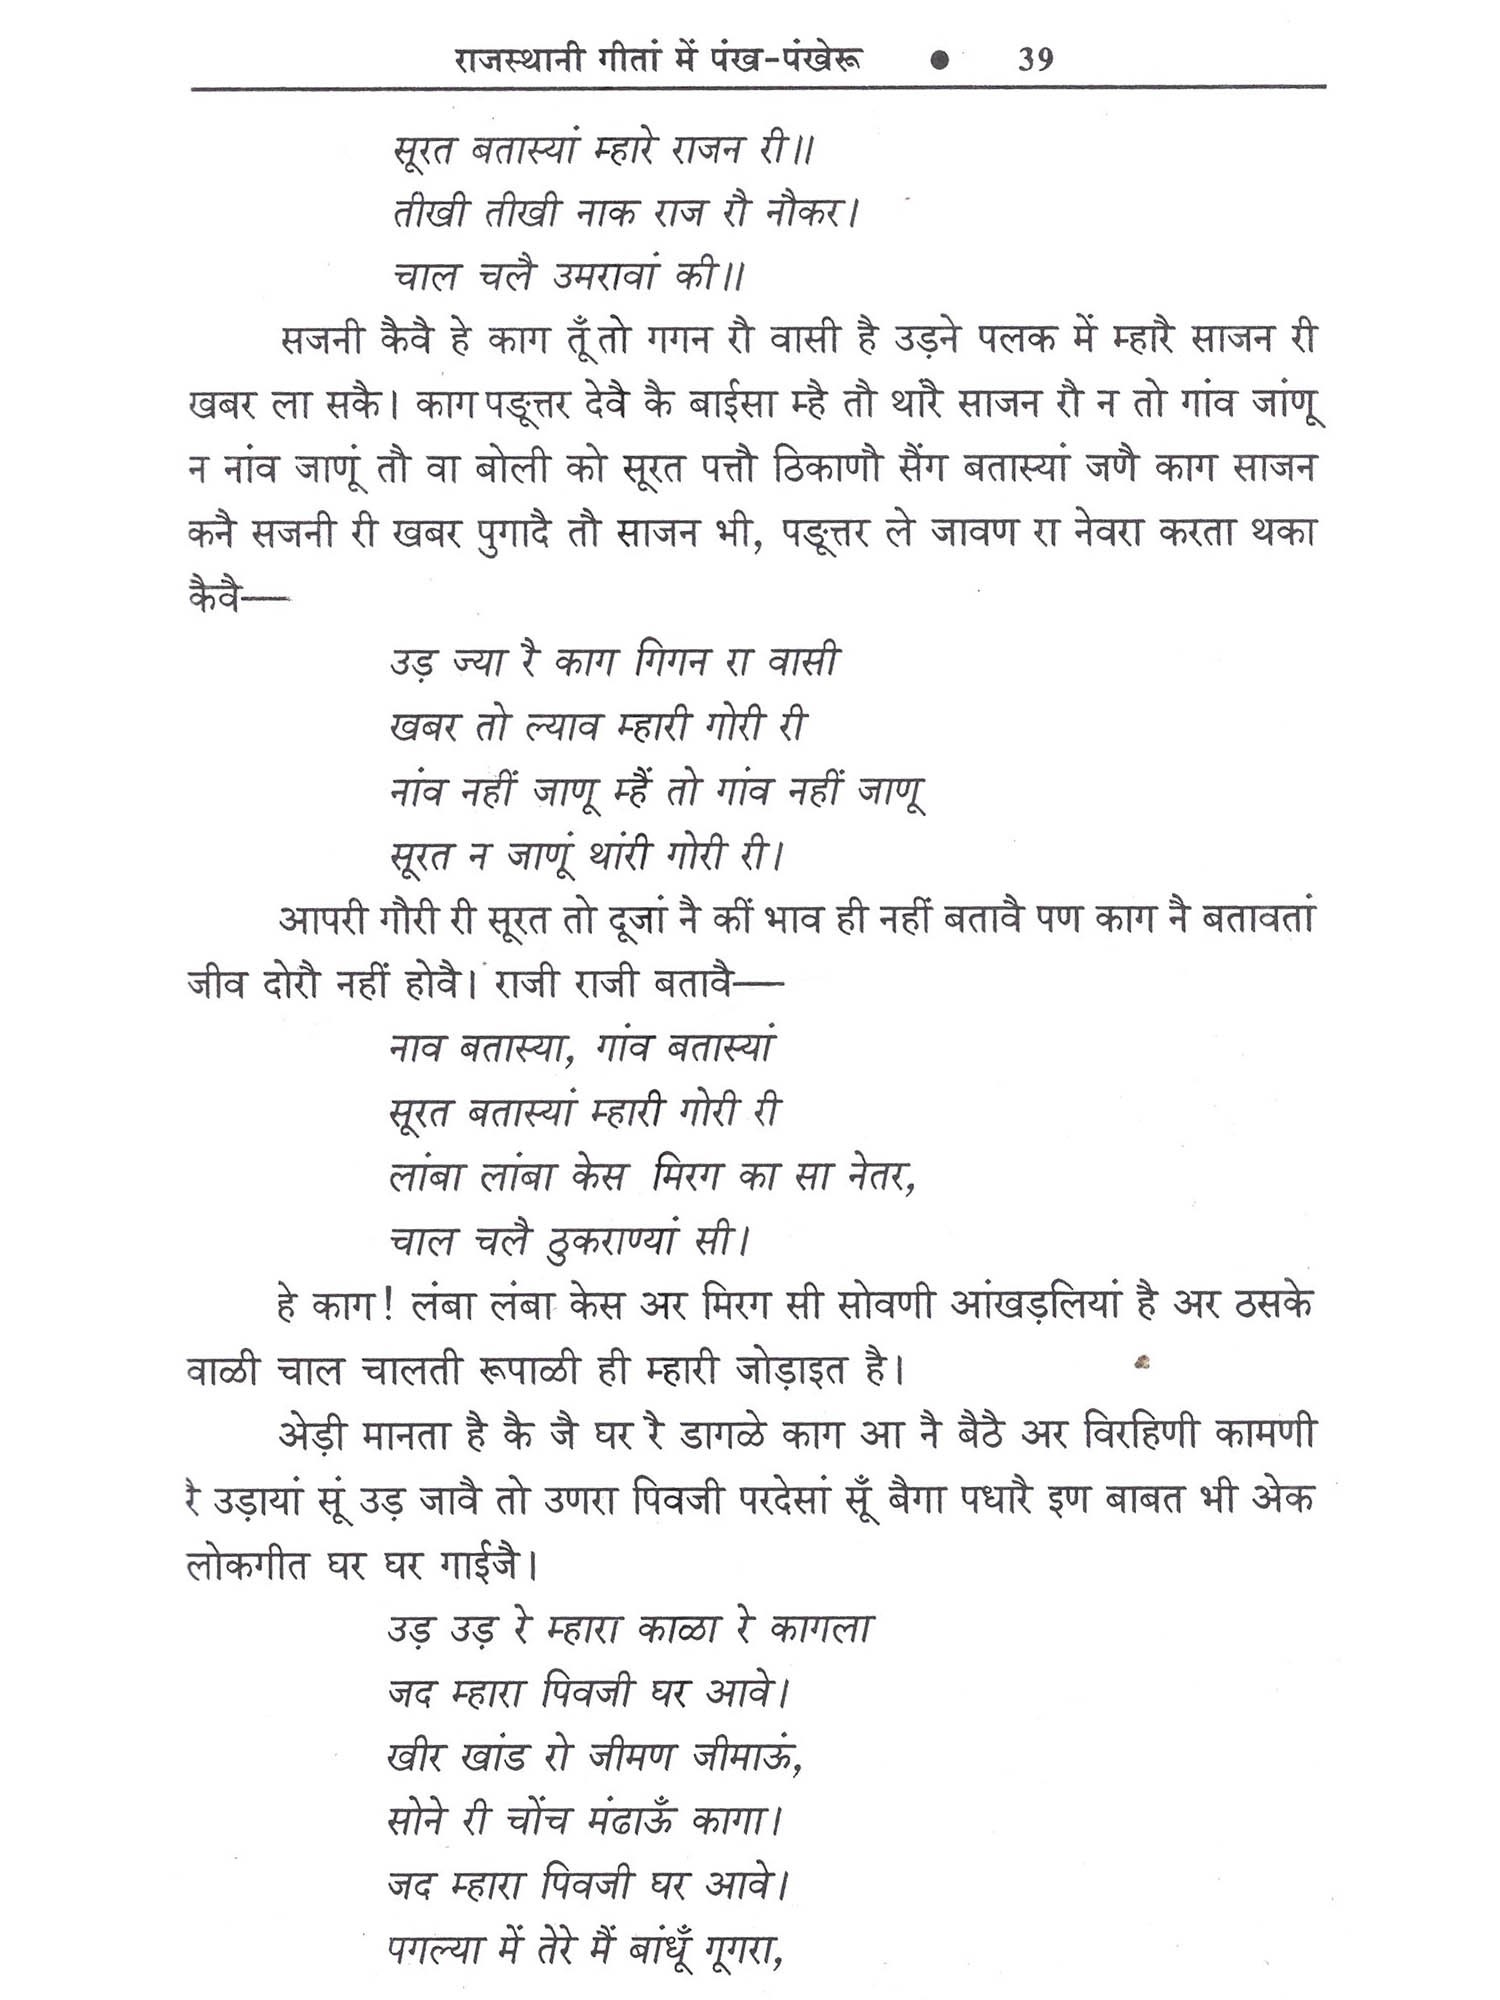 राजस्थानी गीतां में पंख-पंखेरू ● 39
सूरत बतास्यां म्हारे राजन री॥
तीखी तीखी नाक राज रौ नौकर।
चाल चलै उमरावां की॥
सजनी कैवै हे काग तूँ तो गगन रौ वासी है उड़ने पलक में म्हारै साजन री
खबर ला सकै। काग पड्डूत्तर देवै कै बाईसा म्है तौ थांरै साजन रौ न तो गांव जांणू
न नांव जाणूं तौ वा बोली को सूरत पत्तौ ठिकाणौ सैंग बतास्यां जणै काग साजन
कनै सजनी री खबर पुगादै तौ साजन भी, पड्डूत्तर ले जावण रा नेवरा करता थका
कैवै—
उड़ ज्या रै काग गिगन रा वासी
खबर तो ल्याव म्हारी गोरी री
नांव नहीं जाणू म्हैं तो गांव नहीं जाणू
सूरत न जाणूं थांरी गोरी री।
आपरी गौरी री सूरत तो दूजां नै कीं भाव ही नहीं बतावै पण काग नै बतावतां
जीव दोरौ नहीं होवै। राजी राजी बतावै—
नाव बतास्या, गांव बतास्यां
सूरत बतास्यां म्हारी गोरी री
लांबा लांबा केस मिरग का सा नेतर,
चाल चलै ठुकराण्यां सी।
हे काग! लंबा लंबा केस अर मिरग सी सोवणी आंखड़लियां है अर ठसके
वाळी चाल चालती रूपाळी ही म्हारी जोड़ाइत है।
अेड़ी मानता है कै जै घर रै डागळे काग आ नै बैठै अर विरहिणी कामणी
रै उड़ायां सूं उड़ जावै तो उणरा पिवजी परदेसां सूँ बैगा पधारै इण बाबत भी अेक
लोकगीत घर घर गाईजै।
उड़ उड़ रे म्हारा काळा रे कागला
जद म्हारा पिवजी घर आवे।
खीर खांड रो जीमण जीमाऊं,
सोने री चोंच मंढाऊँ कागा।
जद म्हारा पिवजी घर आवे।
पगल्या में तेरे मैं बांधूँ गूगरा,